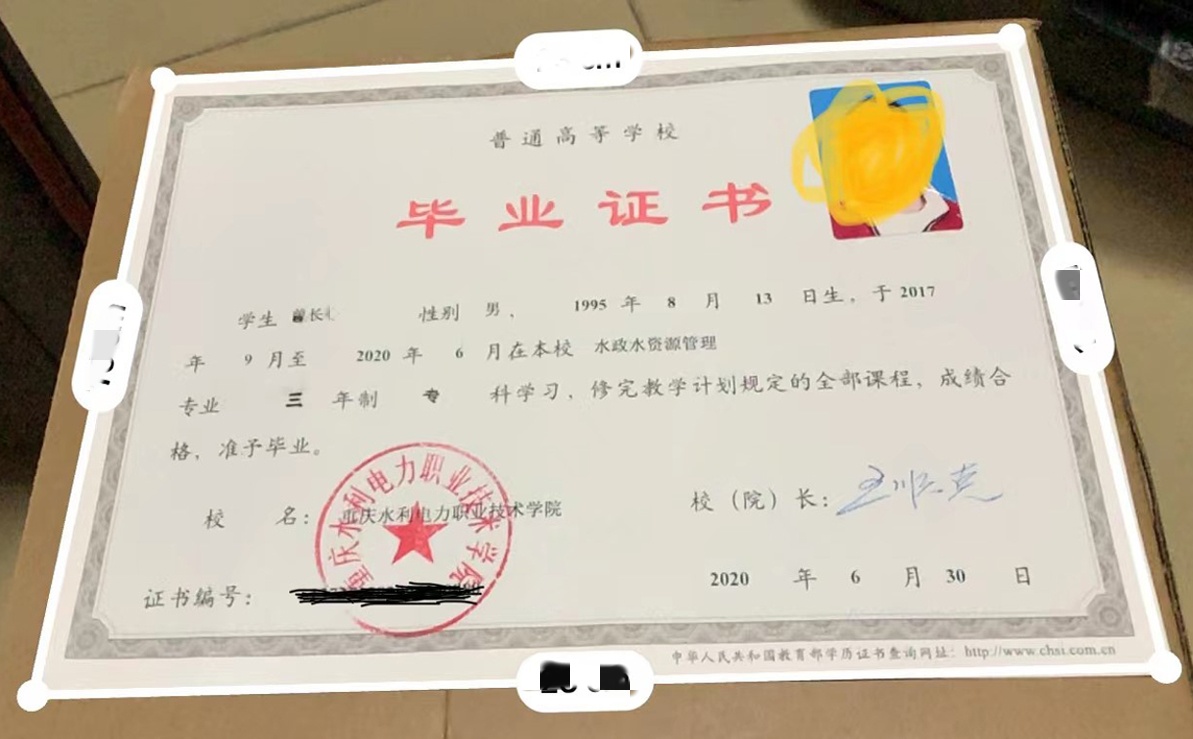 普通高等学校
毕业证书
学生 曾长 性别 男、 1995 年 8 月 13 日生，于 2017
年 9 月至 2020 年 6 月在本校 水政水资源管理
专业 三 年制 专 科学习，修完教学计划规定的全部课程，成绩合
格，准予毕业。
重庆水利电力职业技术学院
校 名：重庆水利电力职业技术学院 校（院）长：王顺克
证书编号： 2020 年 6 月 30 日
中华人民共和国教育部学历证书查询网址：http://www.chsi.com.cn